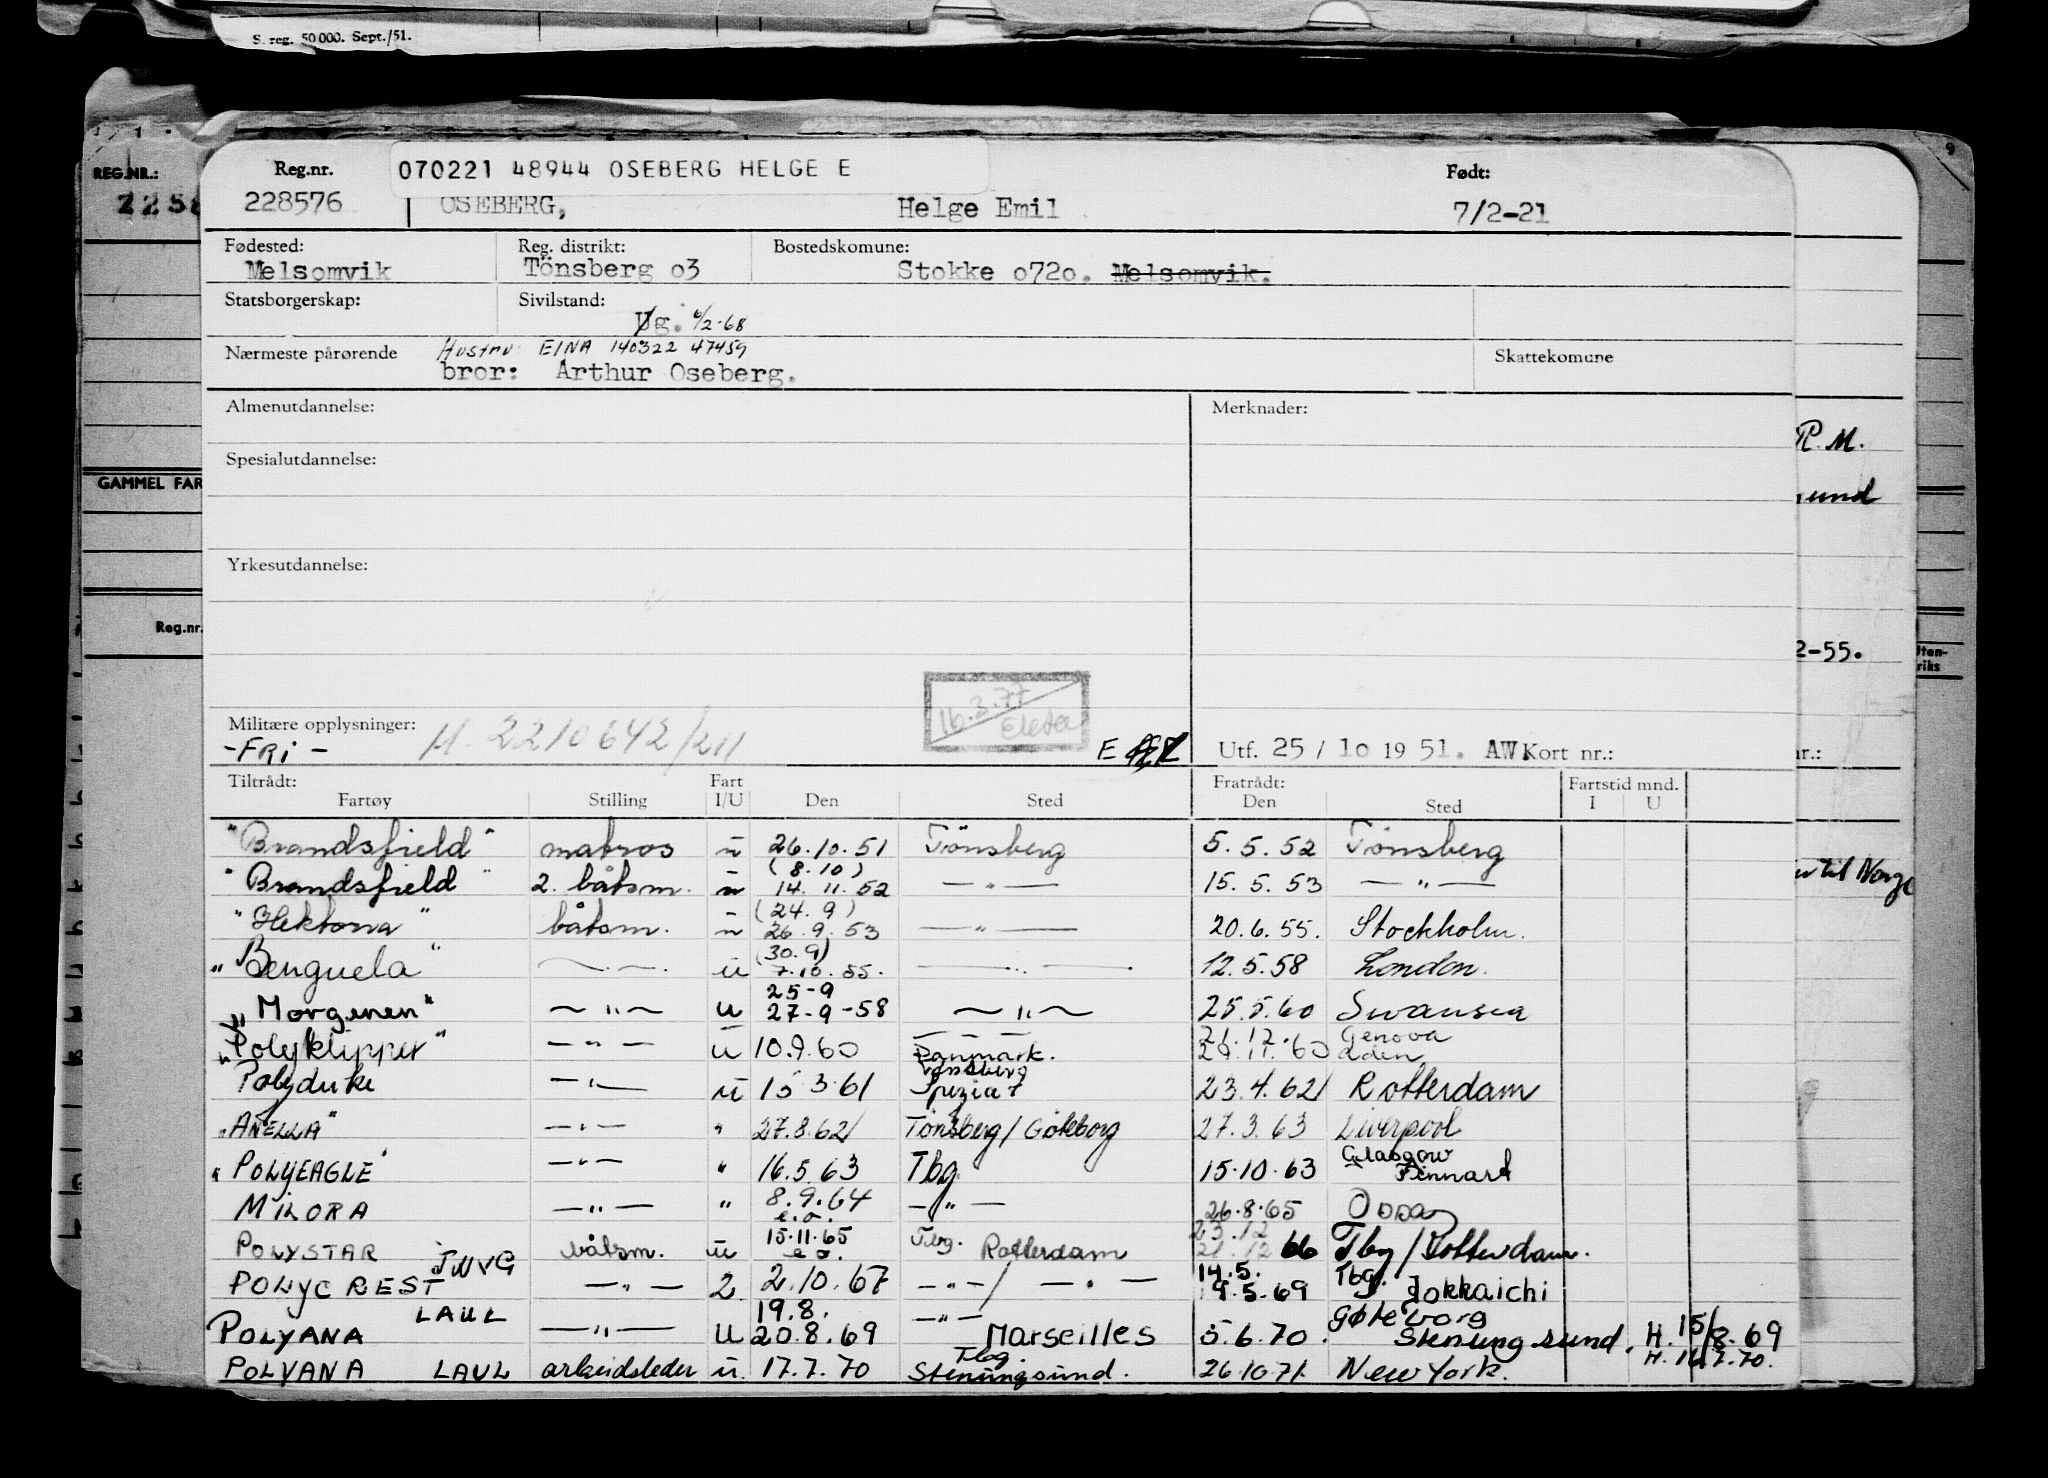 S. reg. 50 000. Sept./51.
REG.NR.:
GAMMEL FAR
Reg.nr.
Reg.nr. 070221 48944 OSEBERG HELGE E Født:
228576 OSEBERG, Helge Emil 7/2-21
Fødested: Reg. distrikt: Bostedskomune:
Melsomvik Tönsberg o3 Stokke o72o. Melsomvik.
Statsborgerskap: Sivilstand:
Ug. 6/2-68
Nærmeste pårørende Hustru: EINA 140322 47459 Skattekomune
bror: Arthur Oseberg.
Almenutdannelse: Merknader:
R. M.
Spesialutdannelse:
sund
Yrkesutdannelse:
2-55.
Militære opplysninger: H. 2210642/211 16.3.77
-FRI- E Utf. 25/10 1951. AW Kort nr.:
Tiltrådt: Fart Fratrådt: Fartstid mnd.
Fartøy Stilling I/U Den Sted Den Sted I U
"Brandsfield" matros u 26.10.51 Tönsberg 5.5.52 Tönsberg
(8.10)
"Brandsfield" 2. båtsm. u 14.11.52 — " — 15.5.53 — " —
(24.9)
"Hektoria" båtsm. u 26.9.53 — " — 20.6.55. Stockholm.
(30.9)
"Benguela" — " — u 7.10.55. — " — 12.5.58 London.
25-9
"Morgenen" — " — u 27-9-58 — " — 25.5.60 Swansea
— " — 21.12. Genova
"Polyklipper" — " — u 10.9.60 Danmark. 60 Aden
Tønsberg
Polyduke — " — u 15 3.61 Spezia 23.4.62 Rotterdam
"ANELLA" — " — " 27.8.62 Tönsberg/Göteborg 27.3.63 Liverpool
Glasgow
"POLYEAGLE" — " — " 16.5.63 Tbg 15.10.63 Finnart
MILORA — " — " 8.9.64 — " — 26.8.65
e.o. 23.12
POLYSTAR båtsm. u 15.11.65 Tbg. Rotterdam 21.12 66 Tbg/Rotterdam.
e.o.
JNVG 14.5. Tbg.
POLYCREST — " — 2 2.10.67 — " — / — " — 9.5.69 Jokkaichi
LAUL 19.8. — " — Göteborg
POLYANA — " — U 20.8.69 Marseilles 5.6.70. Stenungsund. H. 15/8.69
Tbg. H. 16.7.70.
POLYANA LAUL arbeidsleder u. 17.7.70 Stenungsund. 26.10.71. New York.